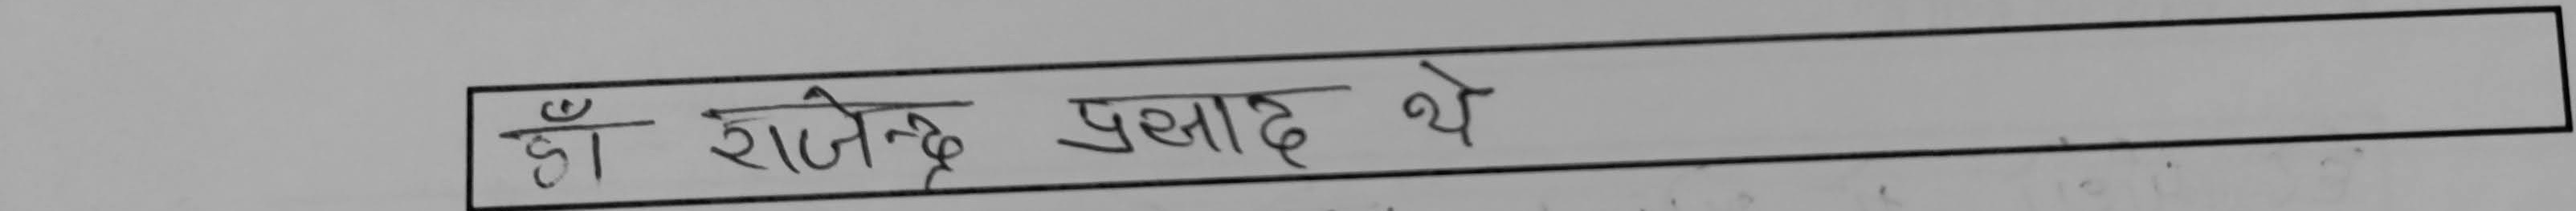 डाँ राजेन्द्र प्रसाद थे